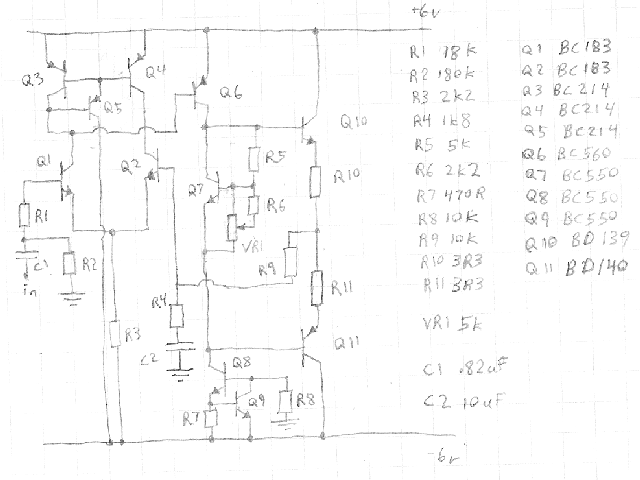 +6v
Q3
Q4
Q5
Q6
Q10
Q1
Q2
Q7
R5
Q10
R1
R6
VR1
C1
R2
in
R9
R4
R11
R3
C2
Q11
Q8
Q9
R7
R8
-6v
R1 18k
R2 180k
R3 2k2
R4 1k8
R5 5k
R6 2k2
R7 470R
R8 10k
R9 10k
R10 3R3
R11 3R3
VR1 5k
C1 .82uF
C2 10uF
Q1 BC183
Q2 BC183
Q3 BC214
Q4 BC214
Q5 BC214
Q6 BC560
Q7 BC550
Q8 BC550
Q9 BC550
Q10 BD139
Q11 BD140